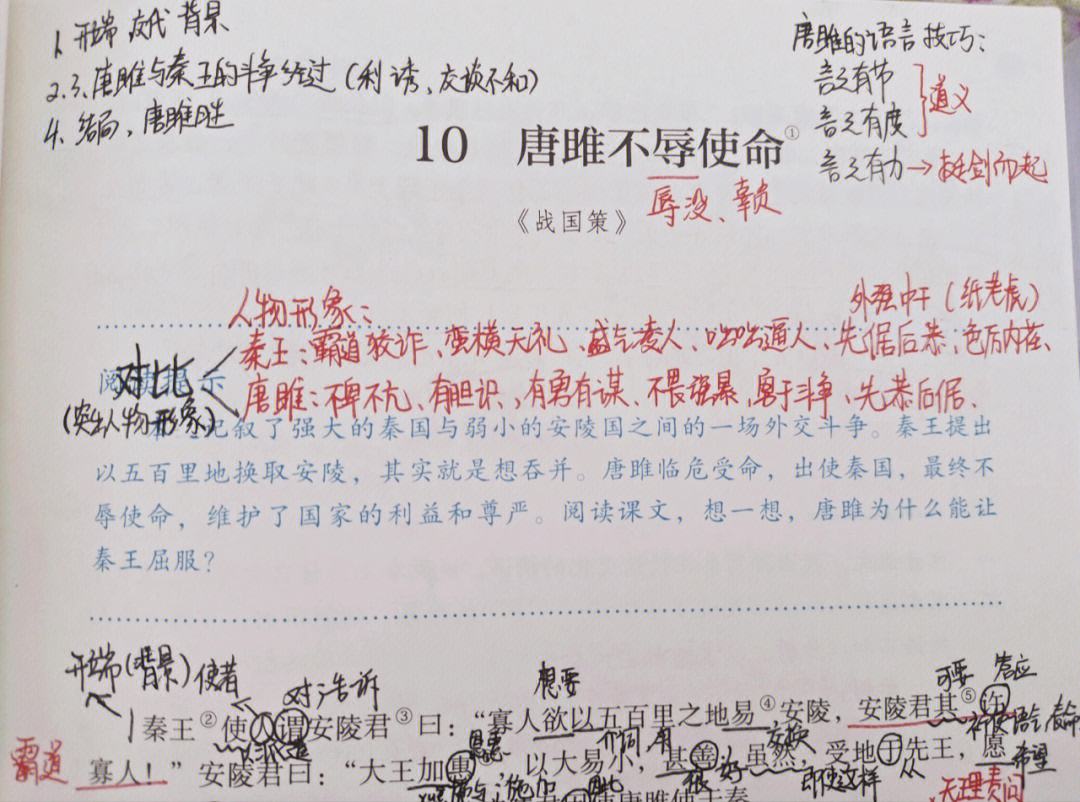 1. 开端 交代 背景
2.3.唐雎与秦王的斗争经过（利诱、交谈不和）
4. 结局，唐雎胜
唐雎的语言技巧：
言之有节
言之有度
道义
言之有力→挺剑而起
10 唐雎不辱使命①
辱没、辜负
《战国策》
人物形象：
外强中干（纸老虎）
秦王：霸道狡诈、蛮横无礼、盛气凌人、咄咄逼人、先倨后恭、色厉内荏、
对比
阅读提示
唐雎：不卑不亢、有胆识、有勇有谋、不畏强暴、勇于斗争、先恭后倨、
(突出人物形象)
叙了强大的秦国与弱小的安陵国之间的一场外交斗争。秦王提出
以五百里地换取安陵，其实就是想吞并。唐雎临危受命，出使秦国，最终不
辱使命，维护了国家的利益和尊严。阅读课文，想一想，唐雎为什么能让
秦王屈服？
开端(背景) 使者 对…告诉 想要 可要 答应
秦王②使人谓安陵君③曰：“寡人欲以五百里之地易④安陵，安陵君其⑤许
派遣 恩惠 介词，用 交换 希望
霸道 寡人！”安陵君曰：“大王加惠，以大易小，甚善；虽然，受地于先王，愿
很 好 即使这样 从 无理责问